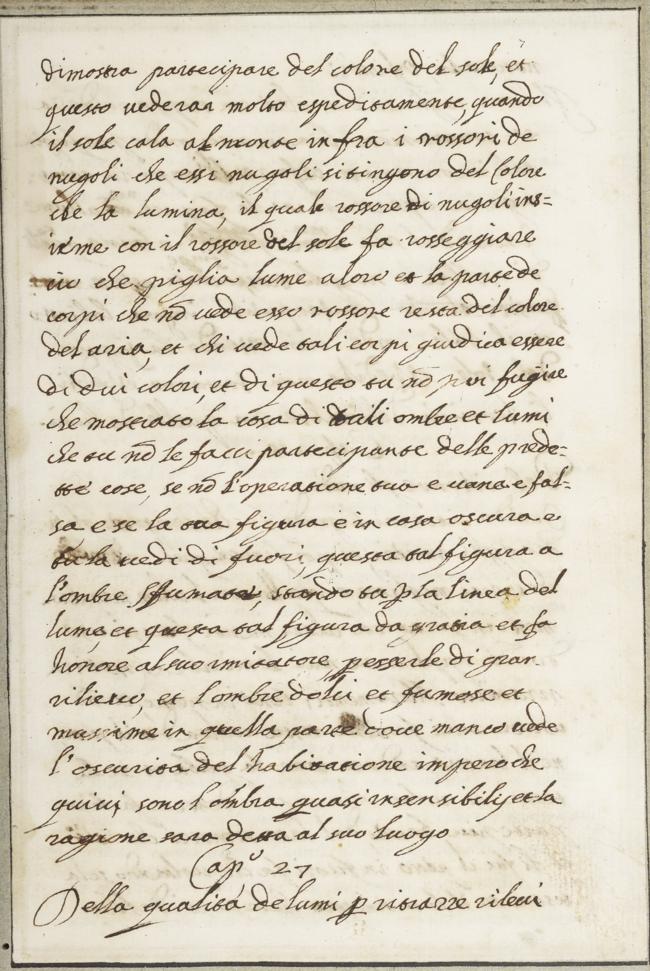 dimostra partecipare del colore del sole, et
questo vederai molto espeditamente, quando
il sole cala al monte in fra i rossori de
nugoli che essi nugoli si tingono del Colore
che la lumina, il quale rossore di nugoli ins=
ieme con il rossore del sole fa rosseggiare
cio che piglia lume a loro et la parte de
corpi che nō vede esso rossore resta del colore
del aria, et chi vede tali corpi giudica essere
di dui colori, et di questo tu nō poi fugire
che mostrato la cosa di tali ombre et lumi
che tu nō le facci partecipante delle prede=
tte cose, se nō l'operatione tua e vana e fal=
sa e se la tua figura e in casa oscura e
tu la vedi di fuori, questa tal figura a
l'ombre sfumate, stando tu ꝑ la linea del
lume, et questa tal figura da gratia et fa
honore al suo imitatore, ꝑ esserle di gran
rilievo, et l'ombre dolci et fumose et
massime in quella parte dove manco vede
l'oscurita del habitatione impero che
quivi sono l'ombra quasi insensibili, et la
ragione sara detta al suo luogo
Capº 27
Della qualita de lumi ꝑ ritrarre rilevi